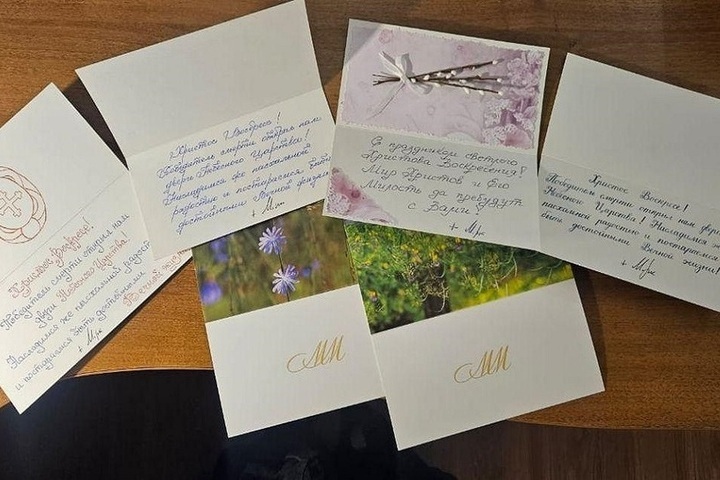 Христос Воскресе!
Победитель смерти открыл нам
двери Небесного Царства!
Насладимся же пасхальной
радостью и постараемся быть
достойными Вечной жизни!
+ М
Христос Воскресе!
Победитель смерти открыл нам
двери Небесного Царства!
Насладимся же пасхальной
радостью и постараемся быть
достойными Вечной жизни!
+ М
С праздником Светлого
Христова Воскресения!
Мир Христов и Его
Милость да пребудут
с Вами!
+ М
Христос Воскресе!
Победитель смерти открыл нам двери
Небесного Царства! Насладимся же
пасхальной радостью и постараемся
быть достойными Вечной жизни!
+ М
ММ
ММ